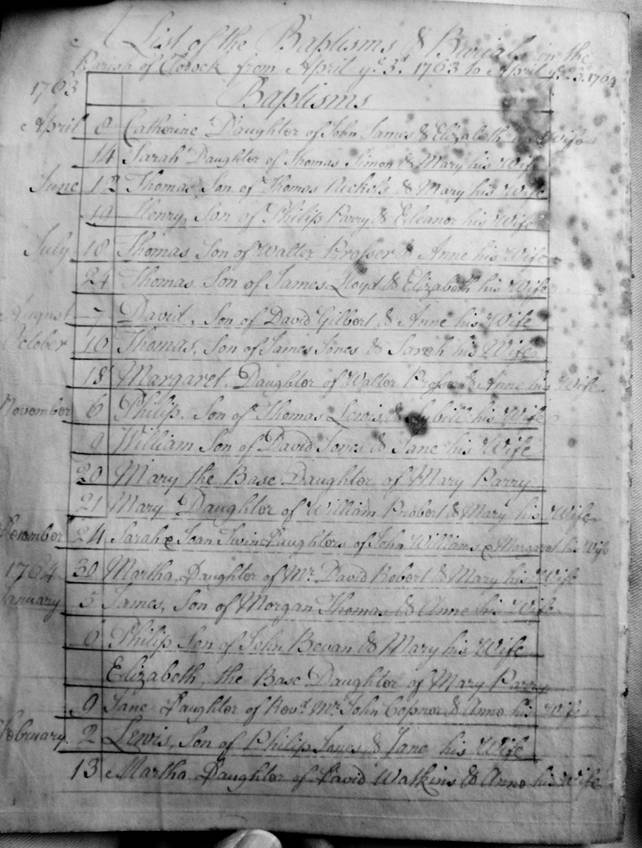 A List of the Baptisms & Burials in the
Parish of from April ye 3. 1763 to April ye 3. 1764
1763
Baptisms
April 8 Catherine Daughter of John James & Elizabeth his Wife
14 Sarah Daughter of Thomas Simon & Mary his Wife
June 12 Thomas Son of Thomas Nichols & Mary his Wife
19 Henry, Son of Philip Parry & Eleanor his Wife
July 10 Thomas Son of Walter Prosser & Anne his Wife
24 Thomas Son of James Lloyd & Elizabeth his Wife
August 7 David, Son of David Gilbert & Anne his Wife
October 10 Thomas, Son of James Jones & Sarah his Wife
18 Margaret, Daughter of Walter Prosser & Anne his Wife
November 6 Philip, Son of Thomas Lewis & his Wife
9 William Son of David Jones & Jane his Wife
20 Mary the Base Daughter of Mary Parry
21 Mary Daughter of William Probert & Mary his Wife
December 24 Sarah & Joan Twin Daughters of John Williams & Margaret his Wife
1764 30 Martha, Daughter of Mr. David Robert & Mary his Wife
January 5 James, Son of Morgan Thomas & Anne his Wife
6 Philip Son of John Bevan & Mary his Wife
Elizabeth, the Base Daughter of Mary Parry
9 Jane Daughter of Revd. Mr. John & Anne his Wife
February 2 Lewis, Son of Philip Jones & Jane his Wife
13 Martha Daughter of David Watkins & Anne his Wife